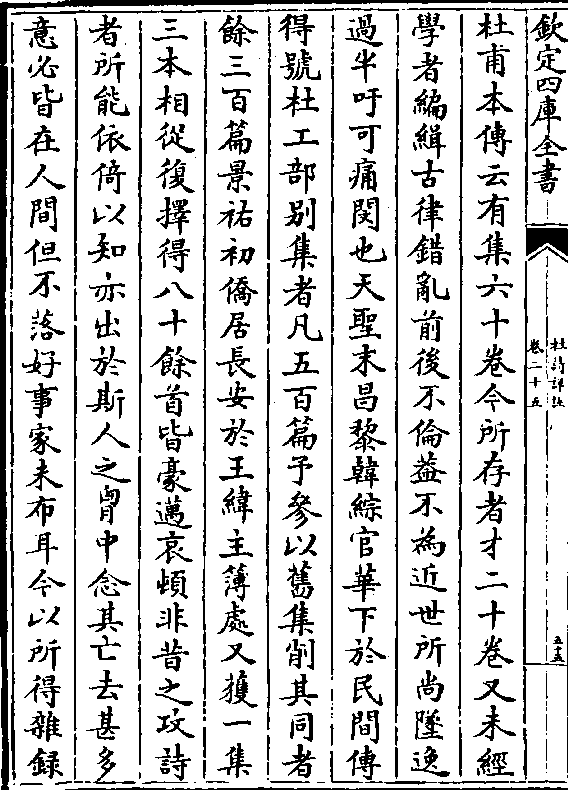 欽定四庫全書
杜詩詳註
卷二十五
五十五
杜甫本傳云有集六十卷今所存者才二十卷又未經
學者編緝古律錯亂前後不倫葢不為近世所尚墜逸
過半吁可痛閔也天聖末昌黎韓綜官華下於民間傳
得號杜工部别集者凡五百篇予參以舊集削其同者
餘三百篇景祐初僑居長安於王緯主簿處又獲一集
三本相從復擇得八十餘首皆豪邁哀頓非昔之攻詩
者所能依倚以知亦出於斯人之胷中念其亡去甚多
意必皆在人間但不落好事家未布耳今以所得雜録